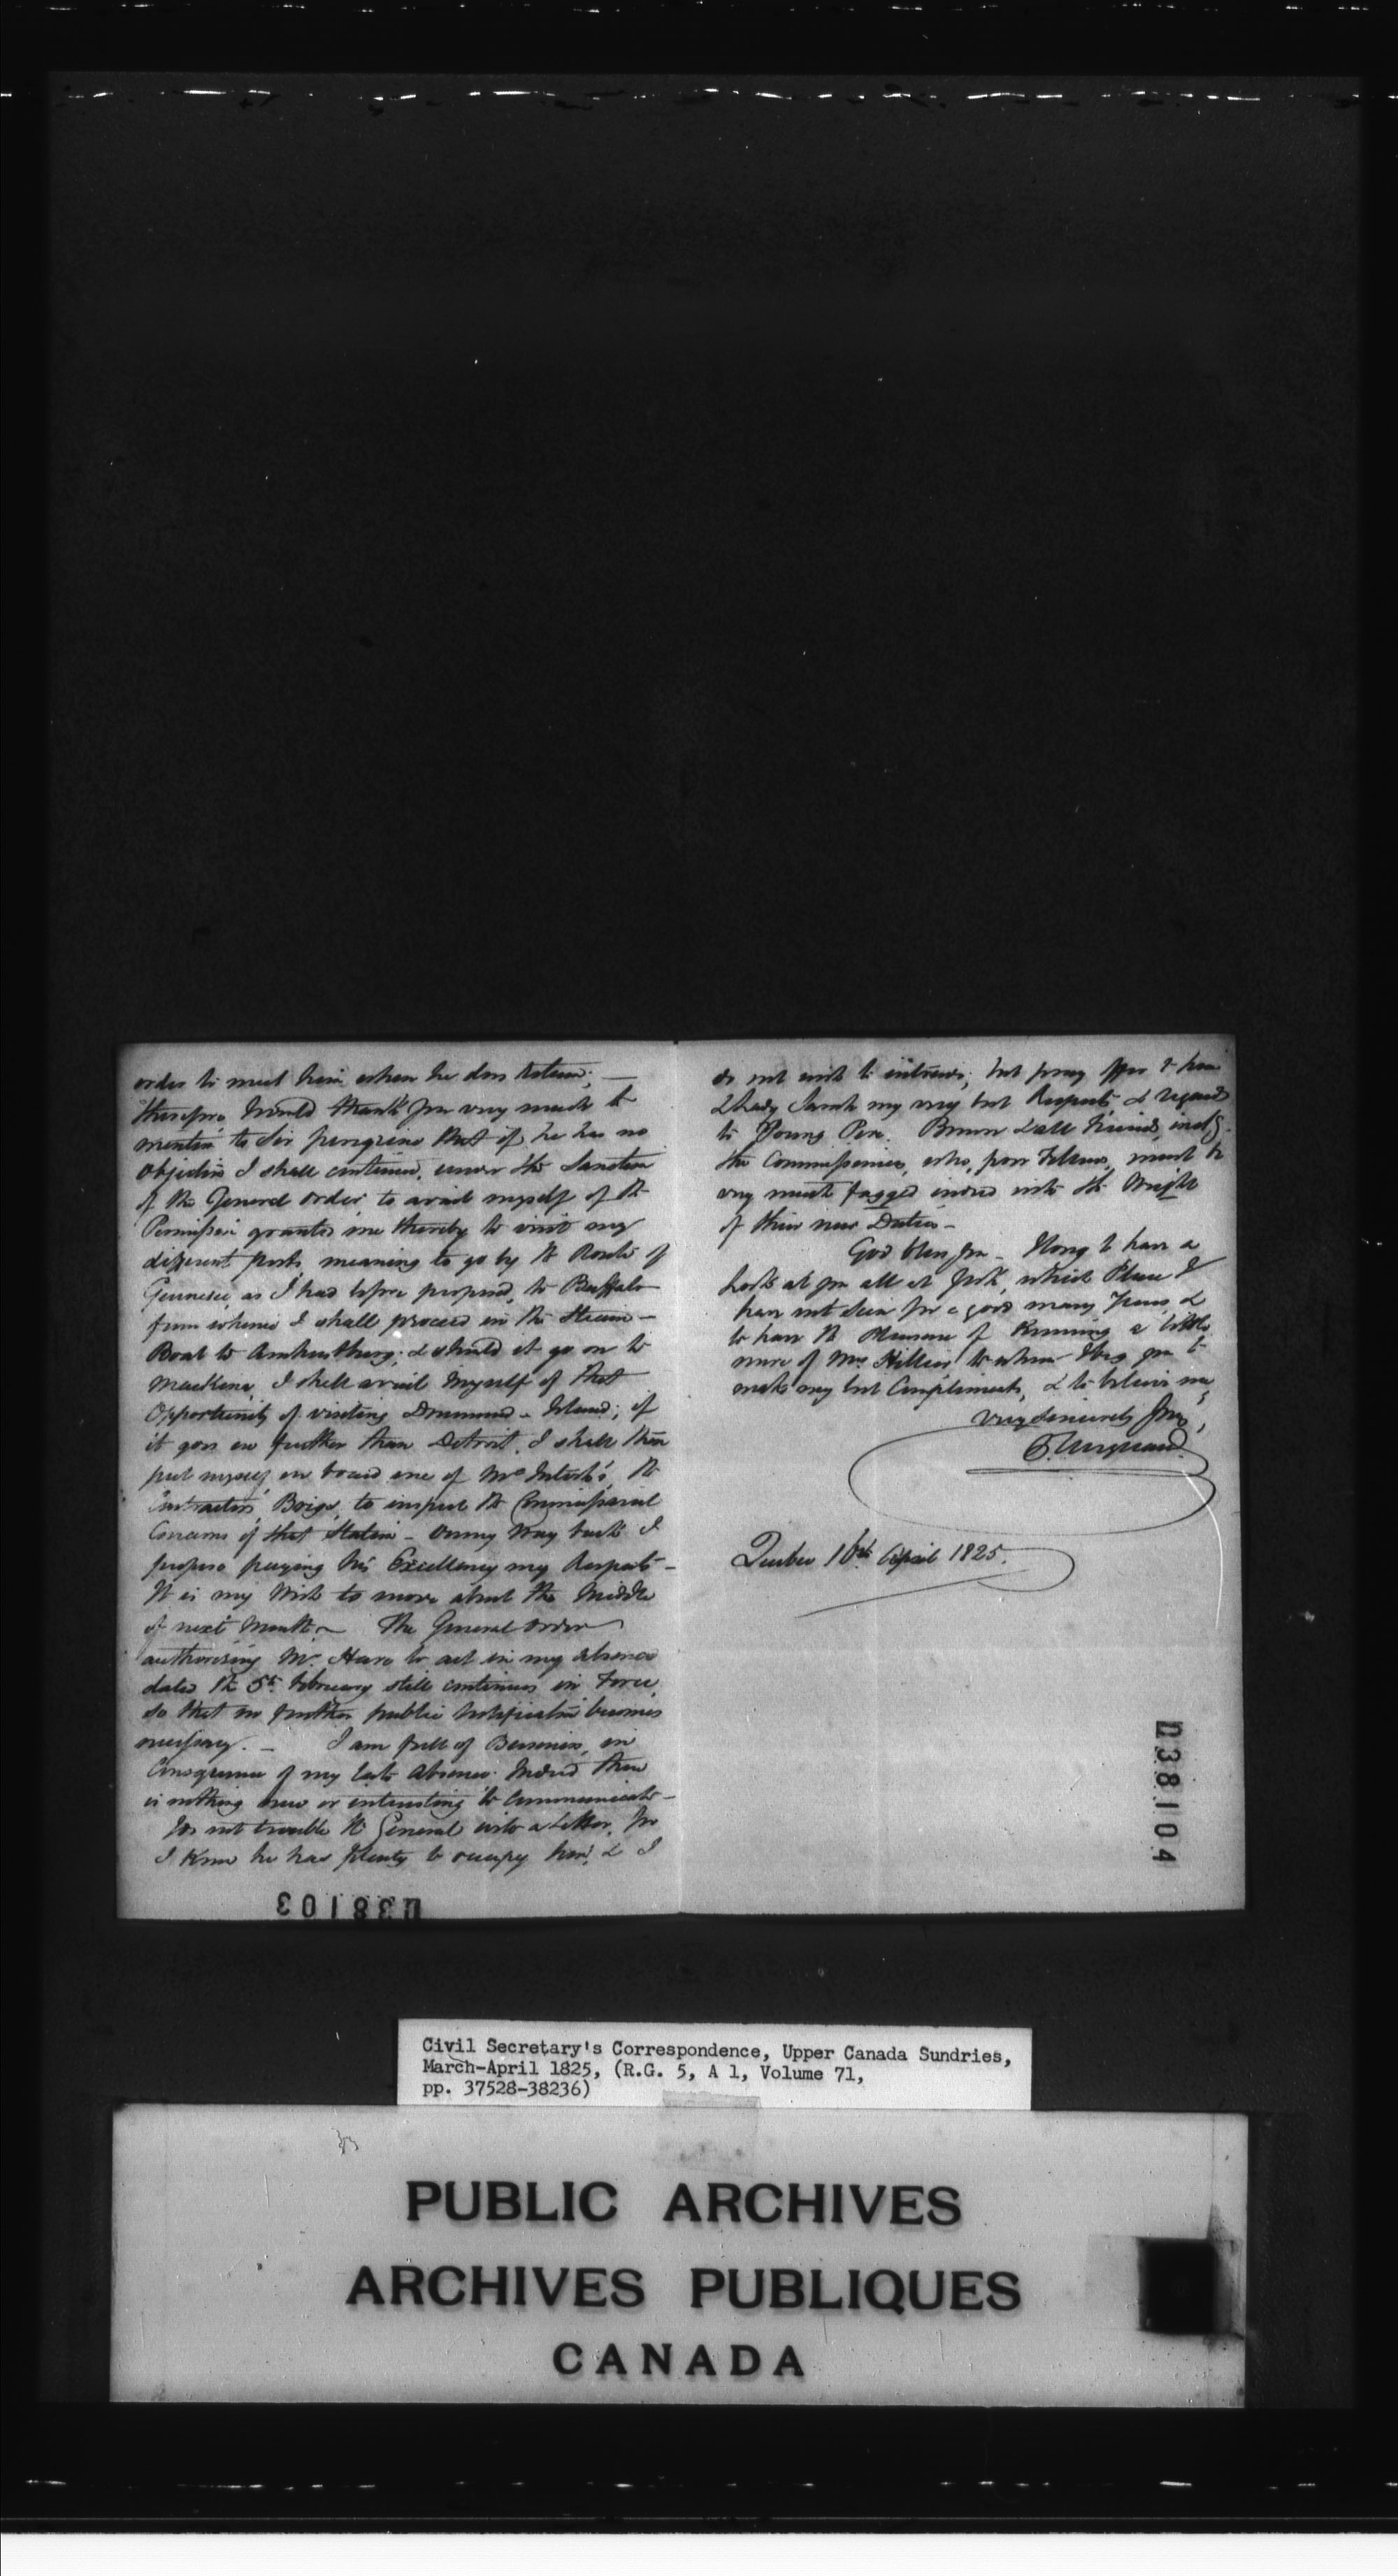 order to meet him when he does return; —
therefore would thank you very much to
mention to Sir Peregrine that if he has no
objection I shall continue, under the Sanction
of the General order, to avail myself of the
Permission granted me thereby to visit my
different posts, meaning to go by the Route of
Gennesee, as I had before proposed, to Buffalo
from whence I shall proceed in the Steam-
Boat to Amherstburg; & should it go on to
Mackena, I shall avail myself of that
Opportunity of visiting Drummond - Island; if
it goes no further than Detroit, I shall then
put myself on board one of McIntosh's, the
Contractors, Brigs, to inspect the Commissariat
Concerns of that Station - On my way back I
propose paying his Excellency my Respects -
It is my Wish to move about the Middle
of next Month - The General Order
authorising Mr. Hare to act in my absence
dated the 5th February still continues in Force,
so that no further public Notification becomes
necessary. - I am full of Business, in
Consequence of my late Absence. Indeed there
is nothing new or interesting to communicate -
I do not trouble the General with a Letter, for
I know he has plenty to occupy him, & I
038103
do not wish to intrude; but pray offer to him
& Lady Sarah my very best Respects & regards
to Young Pen. & all Friends, includg.
the Commissioners, who, poor Fellows, must be
very much fagged indeed with the Weight
of their new Duties -
God bless you - I long to have a
Look at you all at York, which Place I
have not seen for a good many Years, &
to have the Pleasure of Knowing a little
more of Mrs Hillier to whom I beg you to
make my best Compliments, & to believe me
very sincerely Yrs,
Quebec 10th April 1825.
038104
Civil Secretary's Correspondence, Upper Canada Sundries,
March-April 1825, (R.G. 5, A 1, Volume 71,
pp. 37528-38236)
PUBLIC ARCHIVES
ARCHIVES PUBLIQUES
CANADA